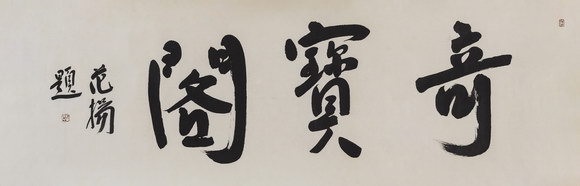 奇寶閣
范揚
題